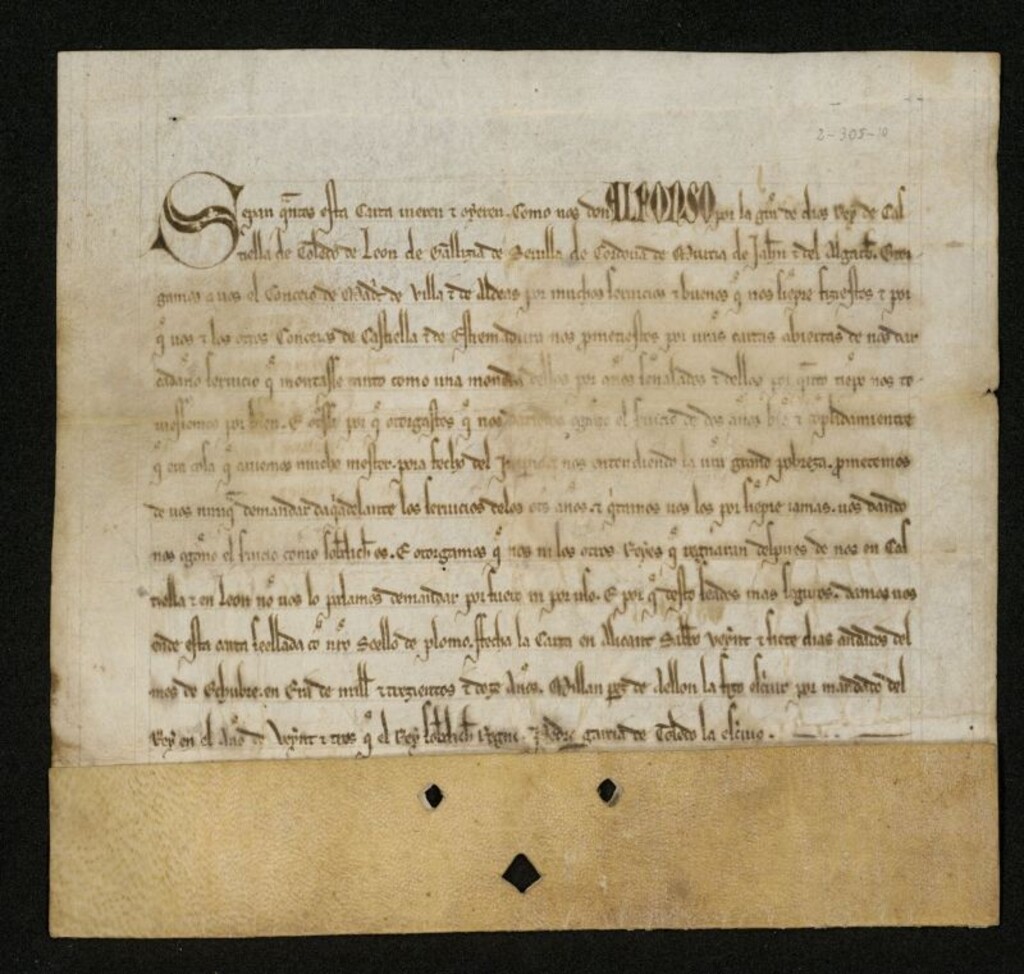 2-305-10
Sepan qntos esta Carta uieren τ oyeren. Como nos don ALFONSO por la grã de dios Rey de Cas
tiella de Toledo de Leon de Gallizia de Seuilla de Cordoua de Murcia de Jahen τ del Algarbe. Otor-
gamos a uos el Conceio de Madᵗ de villa τ de Aldeas por muchos seruicios τ buenos q̃ nos siẽpre fiziestes τ por
q̃ uos τ los otros Conceios de Castiella τ de Estremadura nos prometiestes por uras cartas abiertas de nos dar
cadaño seruicio q̃ montasse tanto como una moneda dellos por años sennalados τ dellos por qñto tiẽpo nos to-
uiessemos por bien. E otrossi por q̃ otorgastes q̃ nos dariedes agora el seruicio de dos años biẽ τ cõplidamientre
q̃ era cosa q̃ auiemos mucho mester pora fecho del Imperio nos entendiendo la ura grand pobreza. prometemos
de uos nunq̃ demandar daq̃ adelante los seruicios delos otros años. τ q̃tamos uos los por siẽpre iamas. uos dando
nos agora el seruicio como sobredicho es. E otorgamos q̃ nos ni los otros Reyes q̃ regnaran despues de nos en Cas
tiella τ en Leon nõ uos lo podamos demandar por fuero ni por uso. E por q̃ desto seades mas seguros. damos uos
ende esta carta seellada cõ nro Seello de plomo. ffecha la Carta en Alicant Sabbado veynt τ siete dias andados del
mes de Ochubre. en Era de mill τ trezientos τ doze Años. Millan pez de Aellon la fizo escriuir por mandado del
Rey en el Año de Veynt τ tres q̃ el Rey sobredicho Regno. Pedro garcia de Toledo la escriuio.